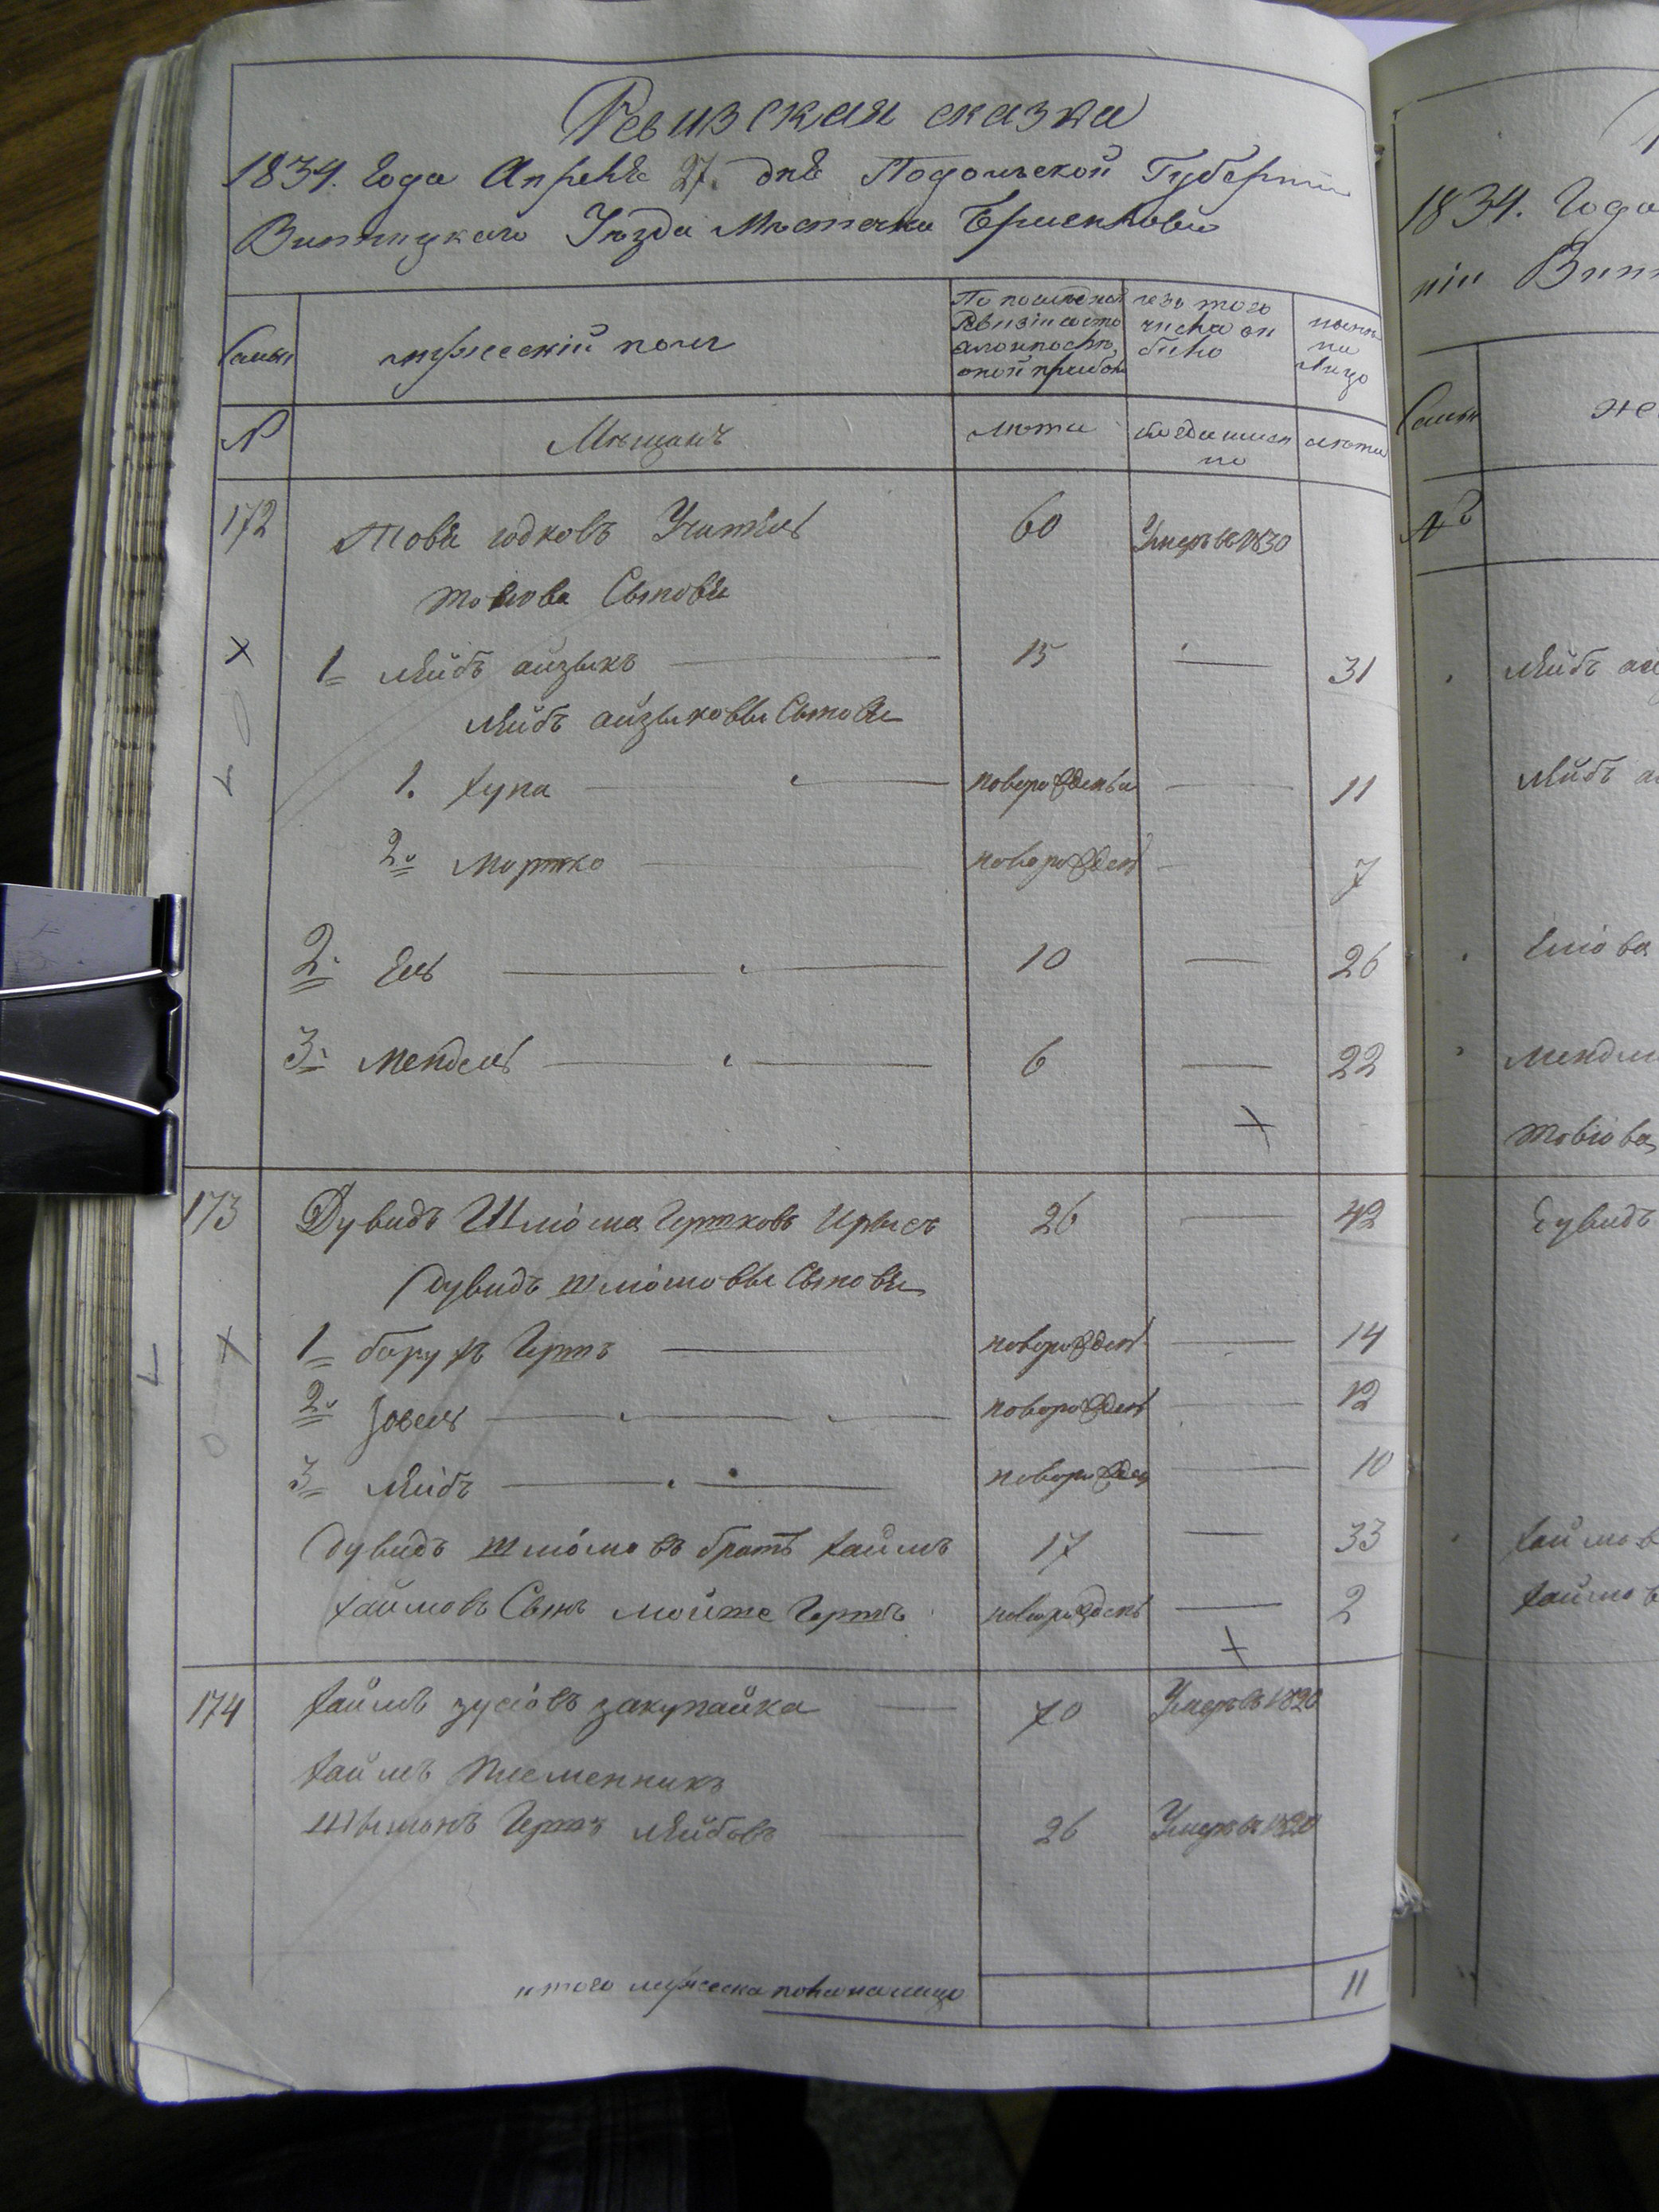 Ревизская сказка
1834. Года Апреля 27. дня Подольской Губернии
Винницкаго Уезда Местечка Браилова
Семьи
мужеский полъ
По последней
Ревизии состо
яло и после
оной прибыло
изъ того
числа вы
было
ныне
на
лицо
№
Мещанъ
лета
когда именно
лета
172
Товія Юдковъ Учитель
60
Умеръ въ 1830
Товіова Сыновья
1 Лейбъ айзыкъ
15
31
Лейбъ айзыковы Сыновья
1. Хуна
новорожденъ
11
2. Мортко
новорожден
7
2. Ель
10
26
3. Мендель
6
22
173
Дувидъ Шлёма Гершковъ
26
42
Дувидъ Шлёмовы Сыновья
1 борухъ Гершъ
новорожден
14
2.
новорожден
12
3 Лейбъ
новорожден
10
Дувидъ Шлёмовъ братъ Хаимъ
17
33
Хаимовъ Сынъ Мойше Гершъ
новорожденъ
2
174
Хаимъ зусіовъ закупайка
70
Умеръ въ 1820
Хаимъ Племенникъ
Шымонъ Гершъ Лейбовъ
26
Умеръ въ 1820
итого мужеска пола на лицо
11
1834. Года
ніи Винн
Семьи
же
№
Лейбъ ай
Лейбъ а
Еліова
Мендел
Товіова
Дувидъ
Хаимов
Хаимов